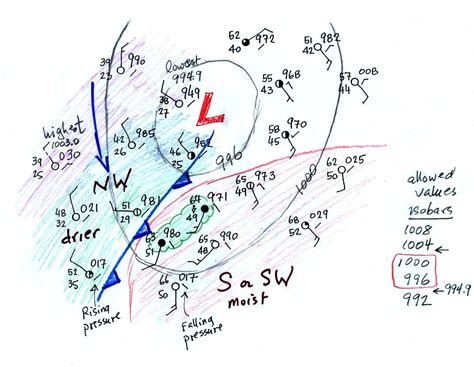 52 972
40
51 982
42
39 990
23
lowest
994.9
38 949
27
55 968
43
57 008
44
highest
1003.0
39 030
25
42 985
26
L
58 970
45
46 962
25
996
1000
62 025
50
NW
65 973
49
allowed
values
isobars
1008
1004
1000
996
992
994.9
48 021
32
51 981
29
64 971
drier
68 029
52
63 980
51
65 990
48
52 017
35
66 017
50
S or SW
moist
Rising
pressure
Falling
pressure